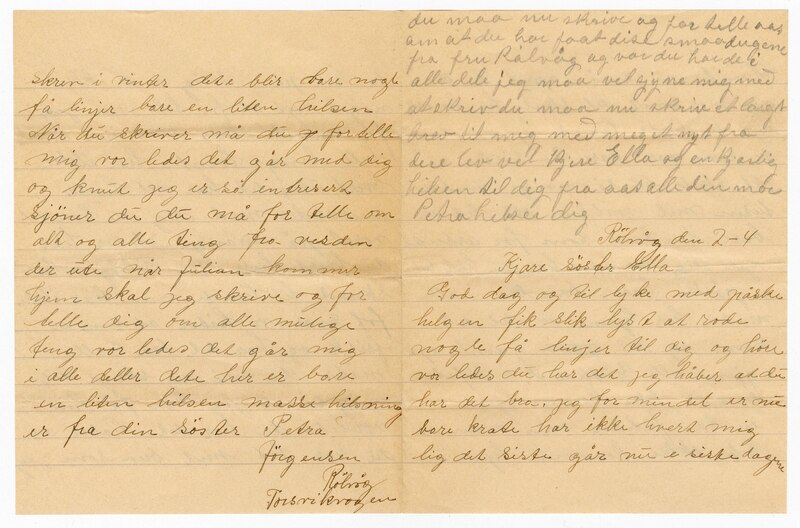 du maa nu skrive og for telle aas
om at du har faat dise smaadugene
fra fru Rålvåg og vor du har de i
alle dele jeg maa vel gjyne mig med
at skriv du maa nu skrive et langt
brev til mig med meget nyt fra
dere lev vel Kjere Ella og en kjærlig
hilsen til dig fra aas alle din mor
Petra hilser dig
Rölvåg den 2-4
Kjare söster Ella
God dag og til lyke med påske
helgen fik slik lyst at rode
nogle få linjer til dig og höre
vor ledes du har det jeg håber at du
har det bra. jeg for min del er nu
bare krate har ikke hvert mig
lig det siste går nu i siste dagene
skrev i vinter dete blir bare nogle
få linjer bare en liten hilsen
Når du skriver må du for telle
mig vor ledes det går med dig
og knut jeg er så intresert
sjöner du du må for telle om
alt og alle ting fra verden
der ute når Julian kommer
hjem skal jeg skrive og for
telle dig om alle mulige
ting vor ledes det går mig
i alle deller dete her er bare
en liten hilsen masse hilsning
er fra din söster Petra
Jörgensen
Rölvåg